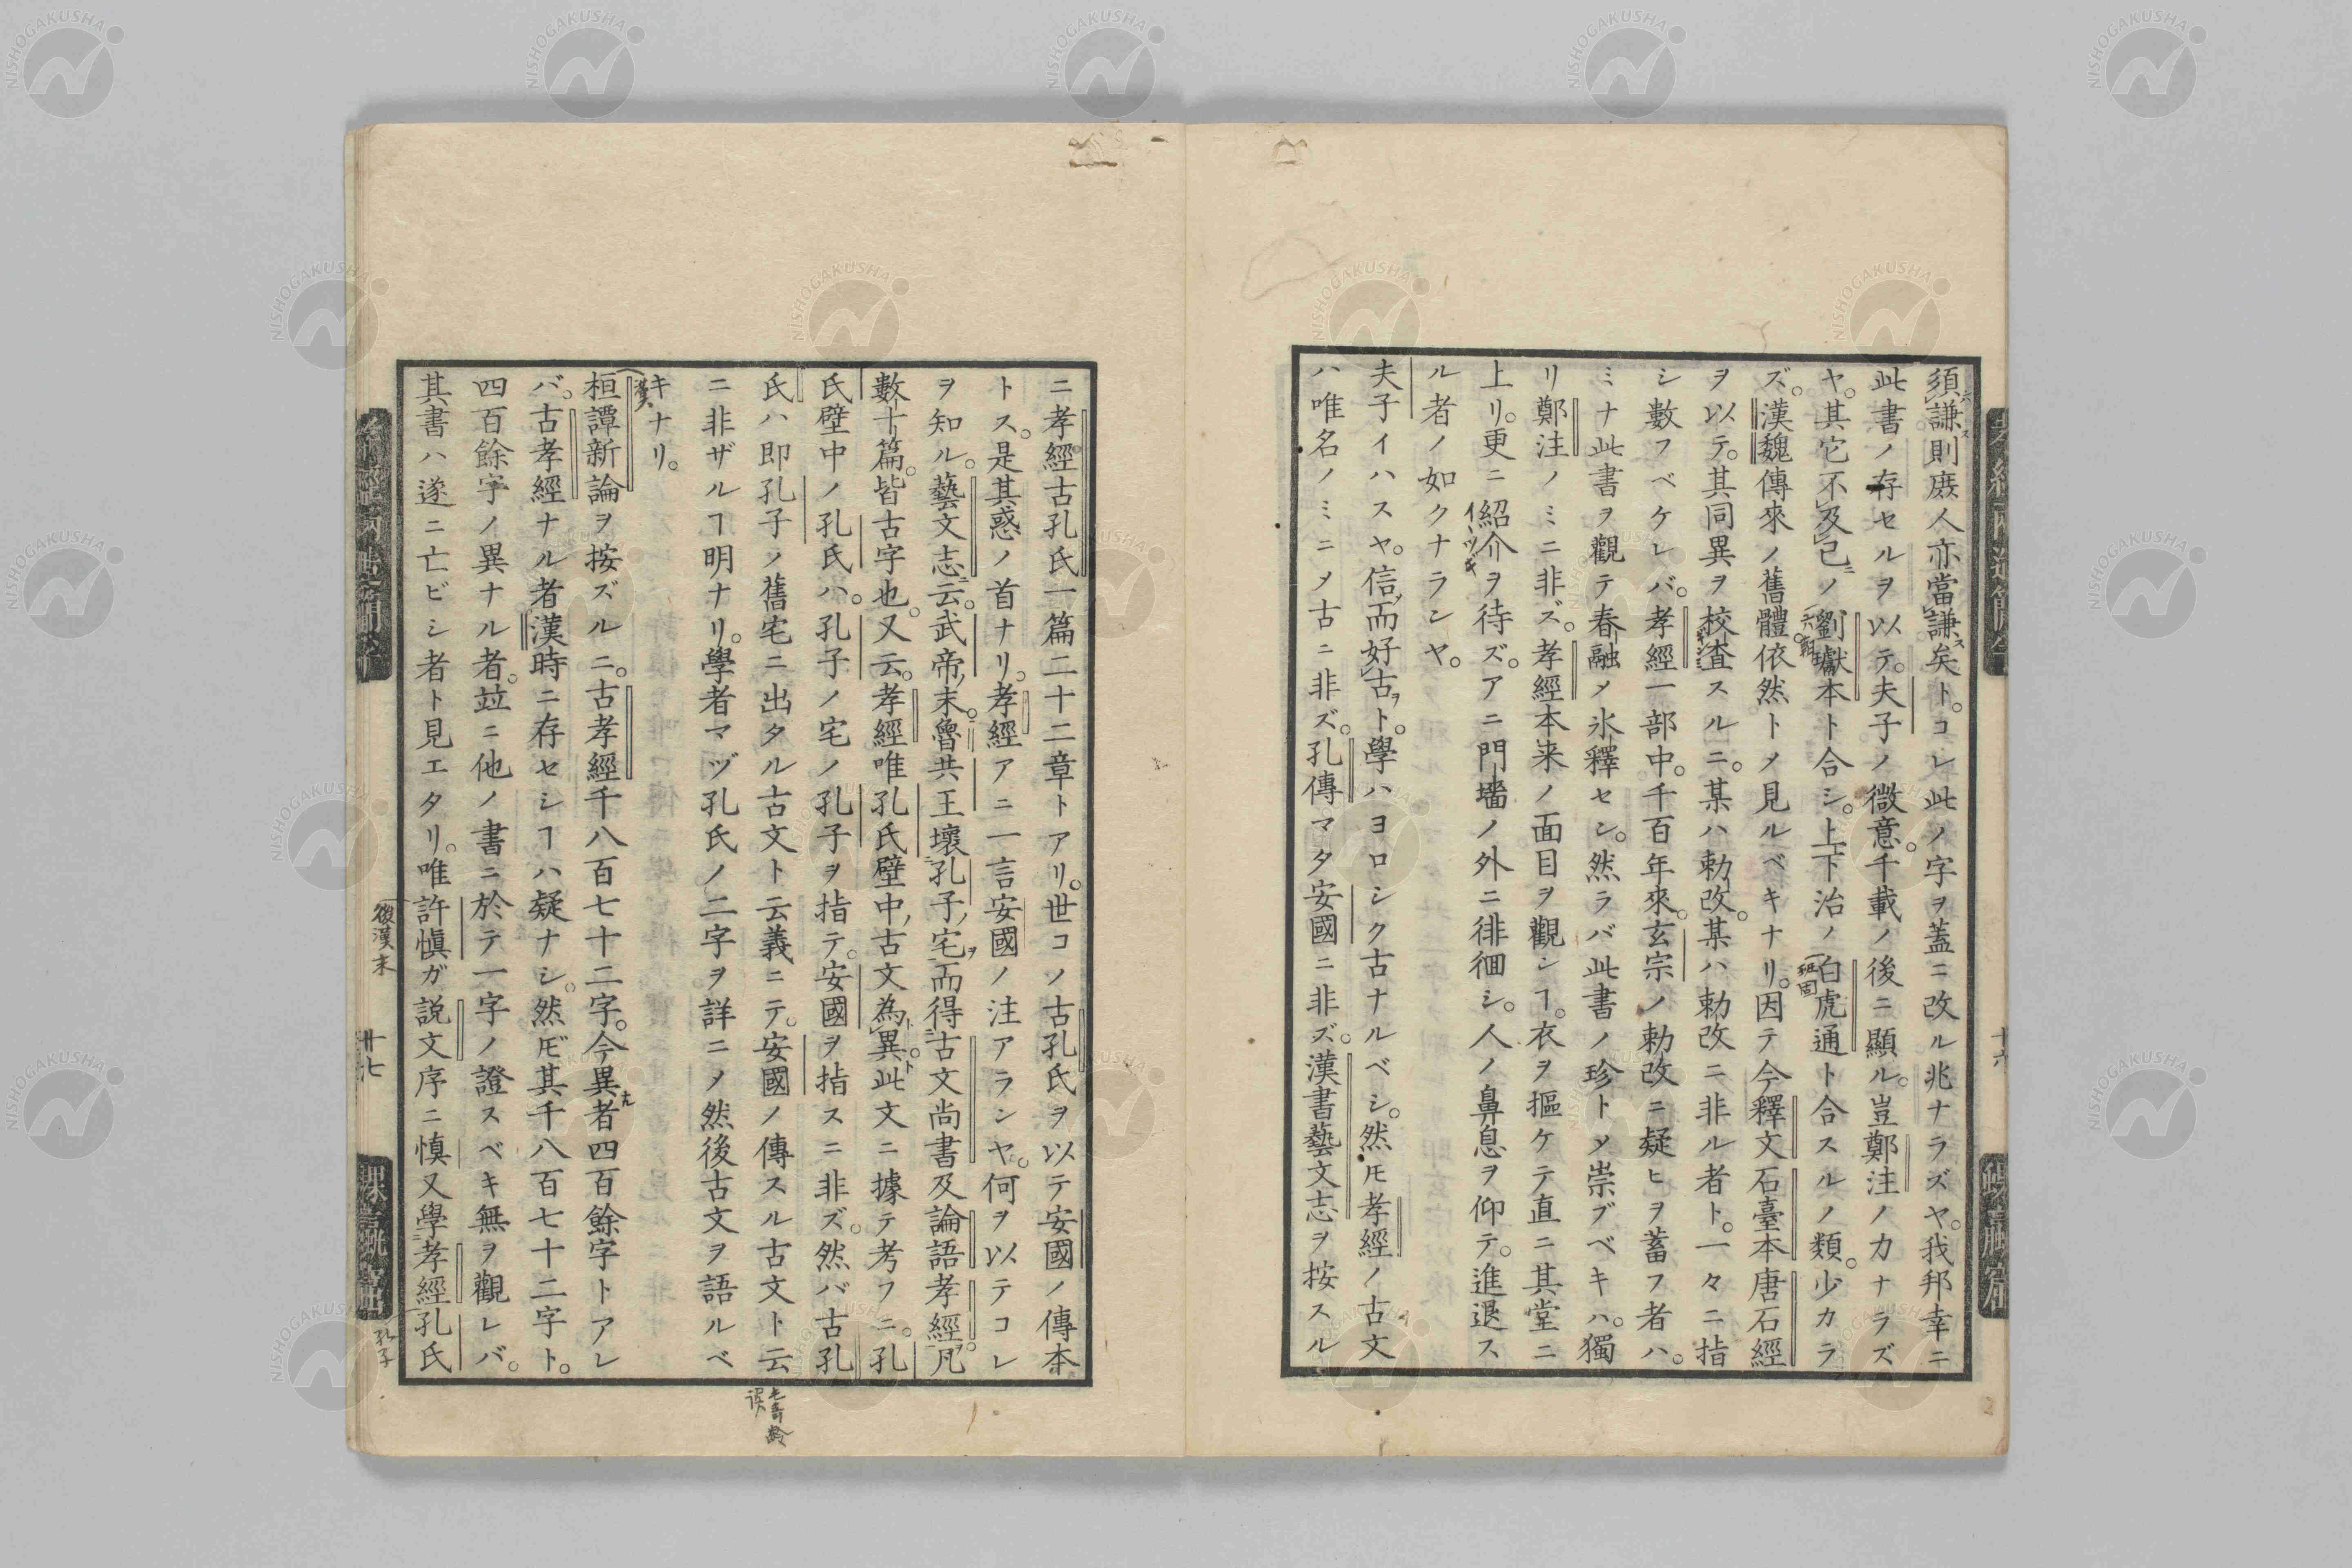 須謙則庻人亦當謙矣ト。コレ此ノ字ヲ蓋ニ改ル兆ナラズヤ。我邦幸ニ
此書ノ存セルヲ以テ。夫子ノ微意。千載ノ後ニ顯ル。豈鄭注ノ力ナラズ
ヤ。其它不及己ノ劉瓛本ト合シ。上下治ノ白虎通ト合スルノ類。少カラ
ズ。漢魏傳來ノ舊體。依然トメ見ルベキナリ。因テ今釋文石臺本唐石經
ヲ以テ。其同異ヲ校査スルニ。某ハ勅改。某ハ勅改ニ非ル者ト。一々ニ指
シ數フベケレバ。孝經一部中。千百年來。玄宗ノ勅改ニ疑ヒヲ蓄フ者ハ。
ミナ此書ヲ觀テ春融メ氷釋セン。然ラバ此書ノ珍トメ崇ブベキハ。獨
リ鄭注ノミニ非ズ。孝經本来ノ面目ヲ觀シヿ。衣ヲ摳ケテ直ニ其堂ニ
上リ。更ニ紹介ヲ待ズ。アニ門墻ノ外ニ徘徊シ。人ノ鼻息ヲ仰テ。進退ス
ル者ノ如クナランヤ。
夫子イハスヤ。信而好古ト。學ハヨロシク古ナルベシ。然𪜈孝經ノ古文
ハ唯名ノミニメ古ニ非ズ。孔傳マタ安國ニ非ズ。漢書藝文志ヲ按スル
十六
ニ孝經古孔氏一篇二十二章トアリ。世コノ古孔氏ヲ以テ安國ノ傳本
トス。是其惑ノ首ナリ。孝經アニ一言安國ノ注アランヤ。何ヲ以テコレ
ヲ知ル。藝文志云。武帝末。魯共王壞孔子宅而得古文尚書及論語孝經。凡
數十篇。皆古字也。又云。孝經唯孔氏壁中古文為異ト。此文ニ據テ考フニ。孔
氏壁中ノ孔氏ハ。孔子ノ宅ノ孔子ヲ指テ。安國ヲ指スニ非ズ。然バ古孔
氏ハ即孔子ノ舊宅ニ出タル古文ト云義ニテ。安國ノ傳スル古文ト云
ニ非ザルヿ明ナリ。學者マヅ孔氏ノ二字ヲ詳ニメ然後古文ヲ語ルベ
キナリ。
桓譚新論ヲ按ズルニ。古孝經千八百七十二字。今異者四百餘字トアレ
バ。古孝經ナル者漢時ニ存セシヿハ疑ナシ。然𪜈其千八百七十二字ト。
四百餘字ノ異ナル者。竝ニ他ノ書ニ於テ一字ノ證スベキ無ヲ觀レバ。
其書ハ遂ニ亡ビシ者ト見エタリ。唯許愼ガ説文序ニ慎又學孝經孔氏
後漢末
廿七
孔子